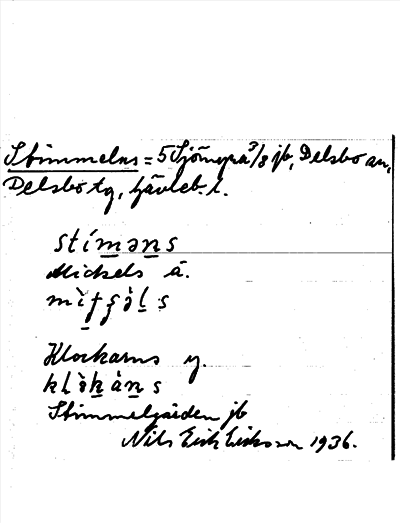 Stimmelns = 5 Sjömyra 3/8 jb, Delsbo an,
Delsbo tg, Gävleb. l.
stímən s
Mickels ä.
Klockarns y.
Stimmelgården jb
Nils Erik Eriksson 1936.